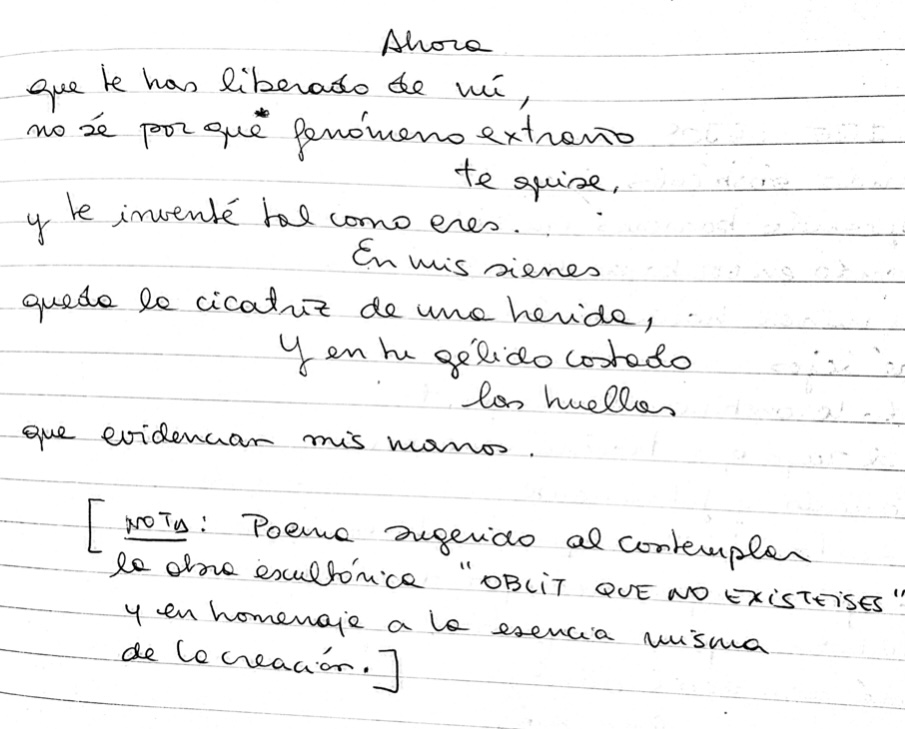 Ahora
que te has liberado de mí,
no sé por qué* fenómeno extraño
te quise,
y te inventé tal como eres.
En mis sienes
queda la cicatriz de una herida,
Y en tu gélido costado
las huellas
que evidencian mis manos.
[NOTA: Poema sugerido al contemplar
la obra escultórica "OBLIT QUE NO EXISTEISES"
y en homenaje a la esencia misma
de la creación.]